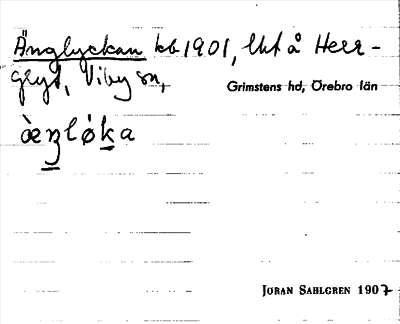 Änglyckan kb 1901, lht å Herr-
gryt, Viby sn,
Grimstens hd, Örebro län
JÖRAN SAHLGREN 1907